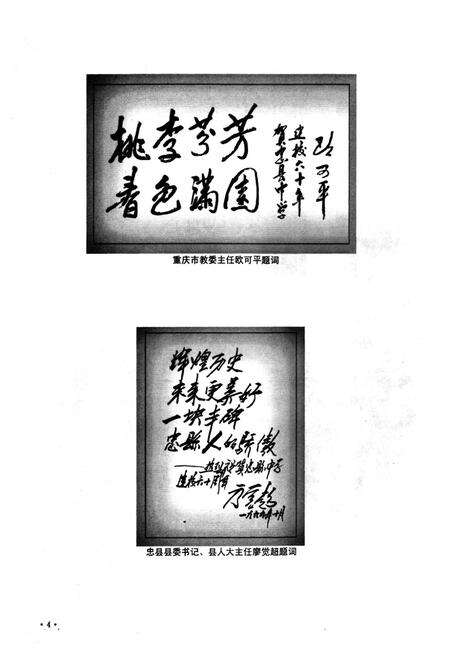 桃李芬芳
春色满园
贺忠县中学
建校六十年
欧可平
重庆市教委主任欧可平题词
辉煌历史
未来更美好
一块丰碑
忠县人的骄傲
建校六十周年
一九九九年十月
忠县县委书记、县人大主任廖觉超题词
·4·